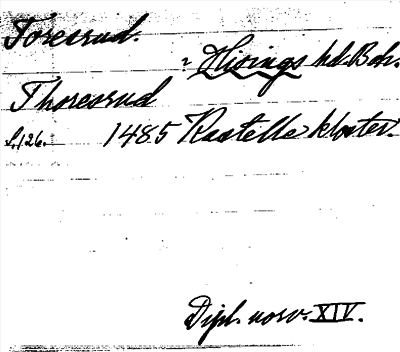 Toresrud.
? Hisings hd. Boh.
Thoresrud
s. 126. 1485 Kastelle kloster.
Dipl. norv. XIV.